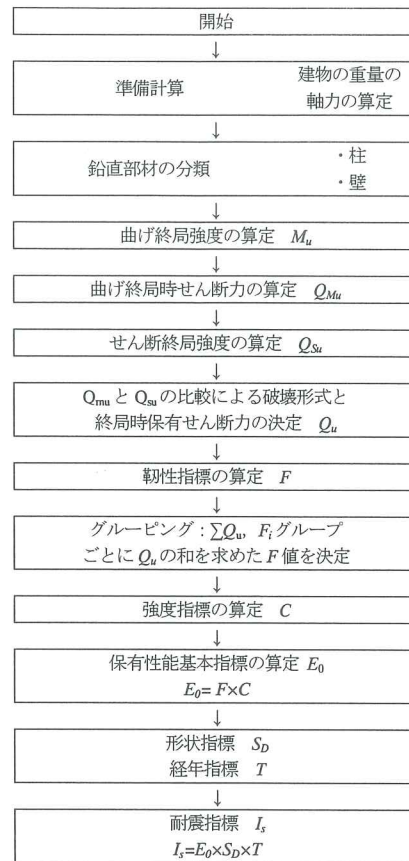 開始
↓
準備計算
建物の重量の
軸力の算定
↓
鉛直部材の分類
・柱
・壁
↓
曲げ終局強度の算定 Mu
↓
曲げ終局時せん断力の算定 QMu
↓
せん断終局強度の算定 QSu
↓
QmuとQsuの比較による破壊形式と
終局時保有せん断力の決定 Qu
↓
靭性指標の算定 F
↓
グルーピング:∑Qu, Fiグループ
ごとにQuの和を求めたF値を決定
↓
強度指標の算定 C
↓
保有性能基本指標の算定 E0
E0= F×C
↓
形状指標 SD
経年指標 T
↓
耐震指標 Is
Is=E0×SD×T